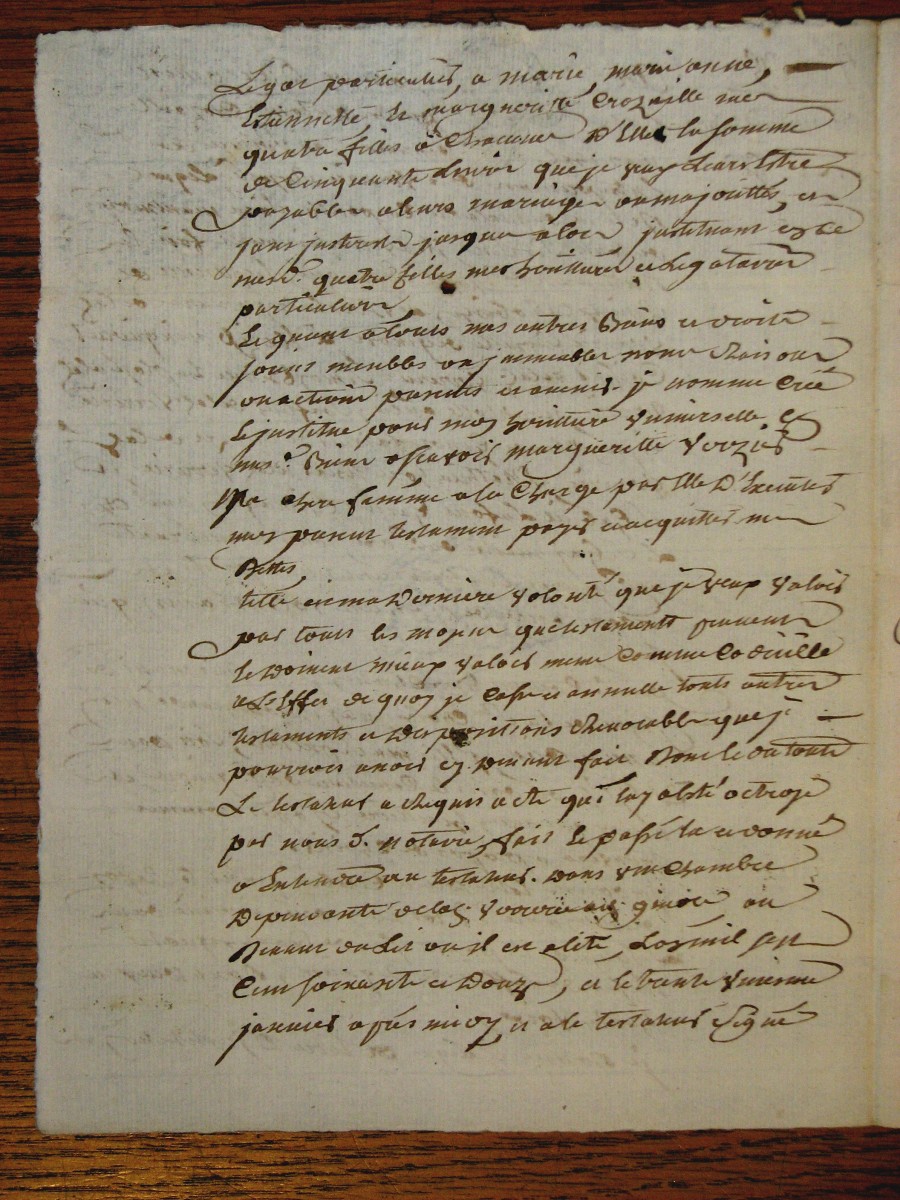 Legat particulier, a marie, marie anne,
Estiennette, et margueritte Crozeille mes
quatre filles a Chacune D'Elles la somme
de Cinquante Livres que je veux leur Estre
payable a leurs mariage ou majorittés, et
sans jnterest jusques alors jnstituant
mesd. quatre filles mes heritieres et Legataires
particulieres
Et quant a touts mes autres Biens et droits
soint meubles ou jmmeubles noms Raisons
ou actions presents et avenir je nomme Créé
Et jnstitue pour mon heritiere universelle
Biens ascavoir margueritte
Ma chere famme a la Charge par Elle D'Executer
mon present testament payer et acquitter mes
Dettes
telle est ma Derniere volonté que je veux valoir
par touts les moyens que testaments peuvent
Et Doivent mieux valoir meme Comme Codicille
a L'Effet de quoy je Casse et annulle touts autres
testaments et Dispositions Revocable que je
pourrois avoir cy Devant fait Dont Et du tout
Le testateur a Requis acte qui luy a Esté octroyé
par nous d. notaire, fait Et passé Lu et donné
a Entendre au testateur Dans une Chambre
Dependante de la au
Devant du Lit ou il est alité, L'an mil sept
Cent soixante et Douze, et le trante unieme
janvier apres midy et a le testateur signé